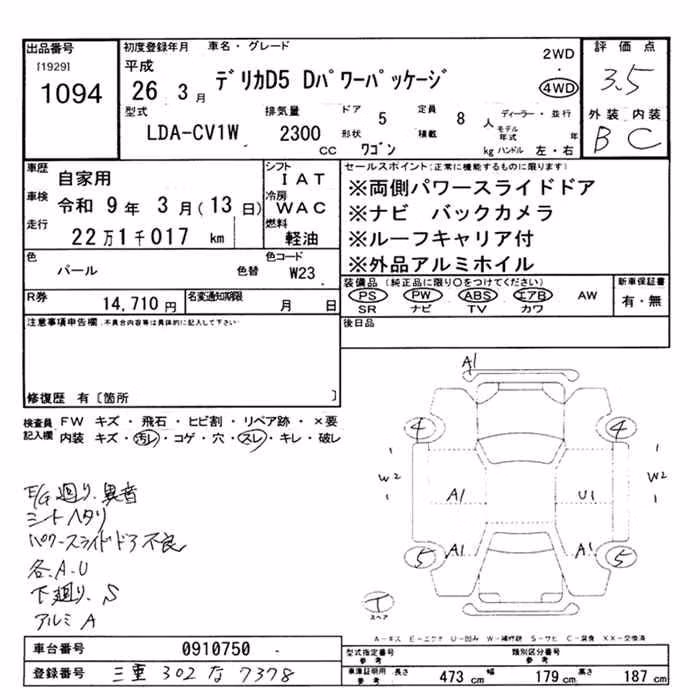 出品番号
[1929]
1094
初度登録年月 車名・グレード
平成
26 3月 デリカD5 Dパワーパッケージ
2WD
・
4WD
評価点
3.5
型式 排気量 ドア 定員 ディーラー・並行
LDA-CV1W 2300 CC 5 8 人
モデル年式 年
形状 積載
ワゴン kg ハンドル 左・右
外装 内装
B C
車歴 自家用
車検 令和 9年 3月(13日)
走行 22万1千017 km
シフト
IAT
冷房
WAC
燃料
軽油
セールスポイント(正常に機能するものに限ります)
※両側パワースライドドア
※ナビ バックカメラ
※ルーフキャリア付
※外品アルミホイル
色 パール 色替
色コード
W23
装備品(純正品に限り〇をつけてください)
PS PW ABS エアB AW
SR ナビ TV カワ
新車保証書
有・無
R券 14,710円 名変通知期限 月 日
後日品
注意事項申告欄.不具合内容等は具体的に記入して下さい
修復歴 有〔箇所 〕
検査員記入欄 FW キズ・飛石・ヒビ割・リペア跡・×要
内装 キズ・汚レ・コゲ・穴・スレ・キレ・破レ
E/G廻り、異音
シートヘタリ
パワースライドドア不良
各、A、U
下廻り、S
アルミ A
A1
4 4
W2 W2
A1 U1
5 A1 A1 5
T
スペア
A-キズ E-エクボ U-凹み W-補修跡 S-サビ C-腐食 XX-交換済
車台番号 0910750
登録番号 三重 302 な 7378
型式指定番号 参考 類別区分番号 参考
車庫証明用 参考 長さ 473 cm 幅 179 cm 高さ 187 cm